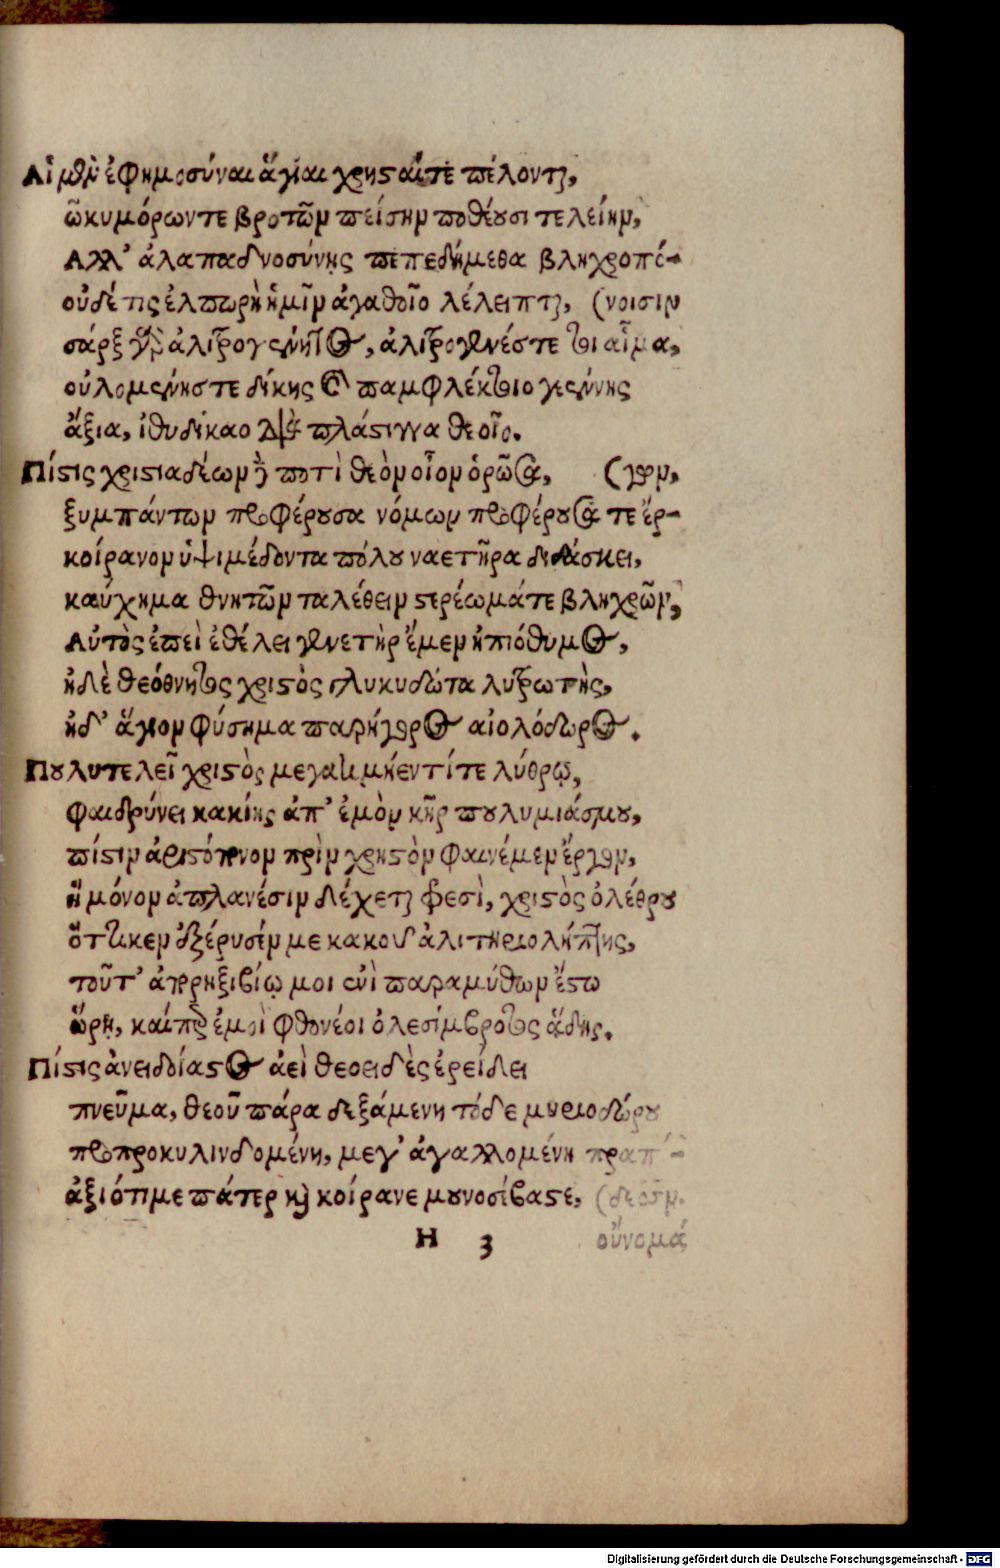 Αἱ μὲν ἐφημοσύναι ἅγιαι χρησαί τε πέλονται,
ὠκυμόρων τε βροτῶν πείσην ποθέουσι τελείην,
Αλλ' ἀλαπαδνοσύνης πεπεδήμεθα βληχροπό-
οὐδέ τις ἐλπωρὴ ἡμῖν ἀγαθοῖο λέλειπται, (νοισιν
σάρξ γὰρ ἀλιτρογένητος, ἀλιτρογενές τε τοι αἷμα,
οὐλομένης τε δίκης καὶ παμφλέκτοιο γεέννης
ἄξια, ἰθυδίκαο διὰ πλάστιγγα θεοῖο.
Πίστις χριστιαδέων δὲ ποτὶ θεὸν οἷον ὁρῶσα, (γον,
ξυμπάντων προφέρουσα νόμων προφέρουσά τε ἔρ-
κοίρανον ὑψιμέδοντα πόλου ναετῆρα διδάσκει,
καύχημα θνητῶν ταλέθειν στερέωμά τε βληχρῶν,
Αὐτὸς ἐπεὶ ἐθέλει γενετὴρ ἔμεν ἠπιόθυμος,
ἠδὲ θεόθνητος χριστὸς γλυκυδώτα λυτρωτὴς,
ἠδ' ἅγιον φύσημα παρήγορος αἰολόδωρος.
Πουλυτελεῖ χριστὸς μεγατιμήεντί τε λύθρῳ,
φαιδρύνει κακίης ἀπ' ἐμὸν κῆρ πουλυμιάσμου,
πίστιν ἀριστότεκνον πρὶν χρηστὸν φαινέμεν ἔργον,
ἣ μόνον ἀπλανέσιν δέχεται φρεσὶ, χριστὸς ὀλέθρου
ὅττι κεν ἐξέρυσέν με κακοῦ ἀλιτηριολήπτης,
τοῦτ' ἀῤῥηξιβίῳ μοι ἐνὶ παραμύθων ἔστω
ὥρῃ, καίπερ ἐμοὶ φθονέοι ὀλεσίμβροτος ἅδης.
Πίστις ἀνειδίαστος ἀεὶ θεοειδὲς ἐρείδει
πνεῦμα, θεοῦ πάρα δεξάμενη τόδε μυριοδώρου
προπροκυλινδομένη, μεγ' ἀγαλλομένη πραπί-
ἀξιότιμε πάτερ καὶ κοίρανε μουνοσίβαστε, (δεσσιν.
Η 3 οὔνομά
Digitalisierung gefördert durch die Deutsche Forschungsgemeinschaft - DFG